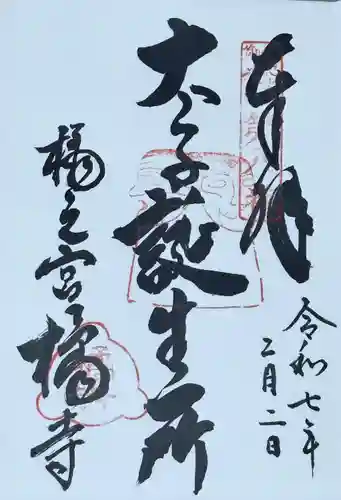 奉拝
令和七年
二月二日
太子誕生所
橘之宮
橘寺